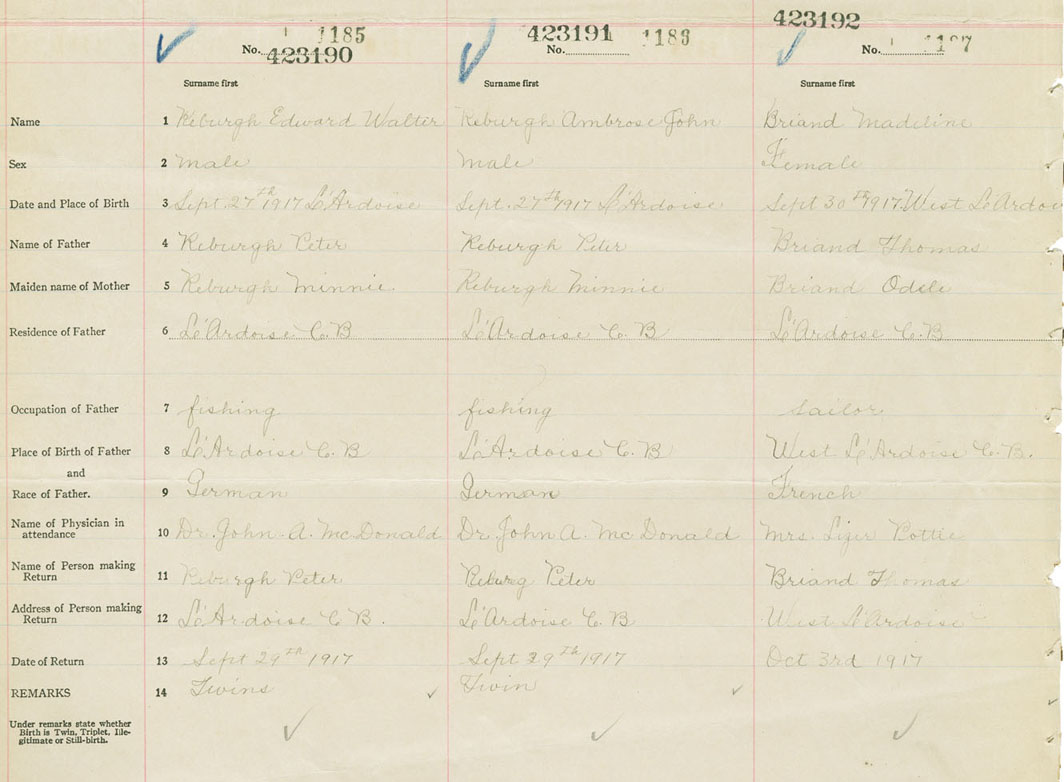 1185 1186 423192
423191
No. 423190 No. No. 1187
Surname first Surname first Surname first
Name 1 Reburgh Edward Walter Reburgh Ambrose John Briand Madeline
Sex 2 male male Female
Date and Place of Birth 3 Sept. 27th 1917 L'Ardoise Sept. 27th 1917 L'Ardoise Sept 30th 1917 West L'Ardoi
Name of Father 4 Reburgh Peter Reburgh Peter Briand Thomas
Maiden name of Mother 5 Reburgh Minnie. Reburgh Minnie Briand Odile
Residence of Father 6 L'Ardoise C.B L'Ardoise C.B L'Ardoise C.B
Occupation of Father 7 fishing fishing sailor
Place of Birth of Father 8 L'Ardoise C.B L'Ardoise C.B West L'Ardoise C.B.
and
Race of Father. 9 German German French
Name of Physician in attendance 10 Dr. John A. McDonald Dr. John A. McDonald Mrs. Pottie
Name of Person making Return 11 Reburgh Peter Reburg Peter Briand Thomas
Address of Person making Return 12 L'Ardoise C B. L'Ardoise C B West L'Ardoise
Date of Return 13 Sept 29th 1917 Sept 29th 1917 Oct 3rd 1917
REMARKS 14 Twins Twin
Under remarks state whether
Birth is Twin, Triplet, Ille-
gitimate or Still-birth.